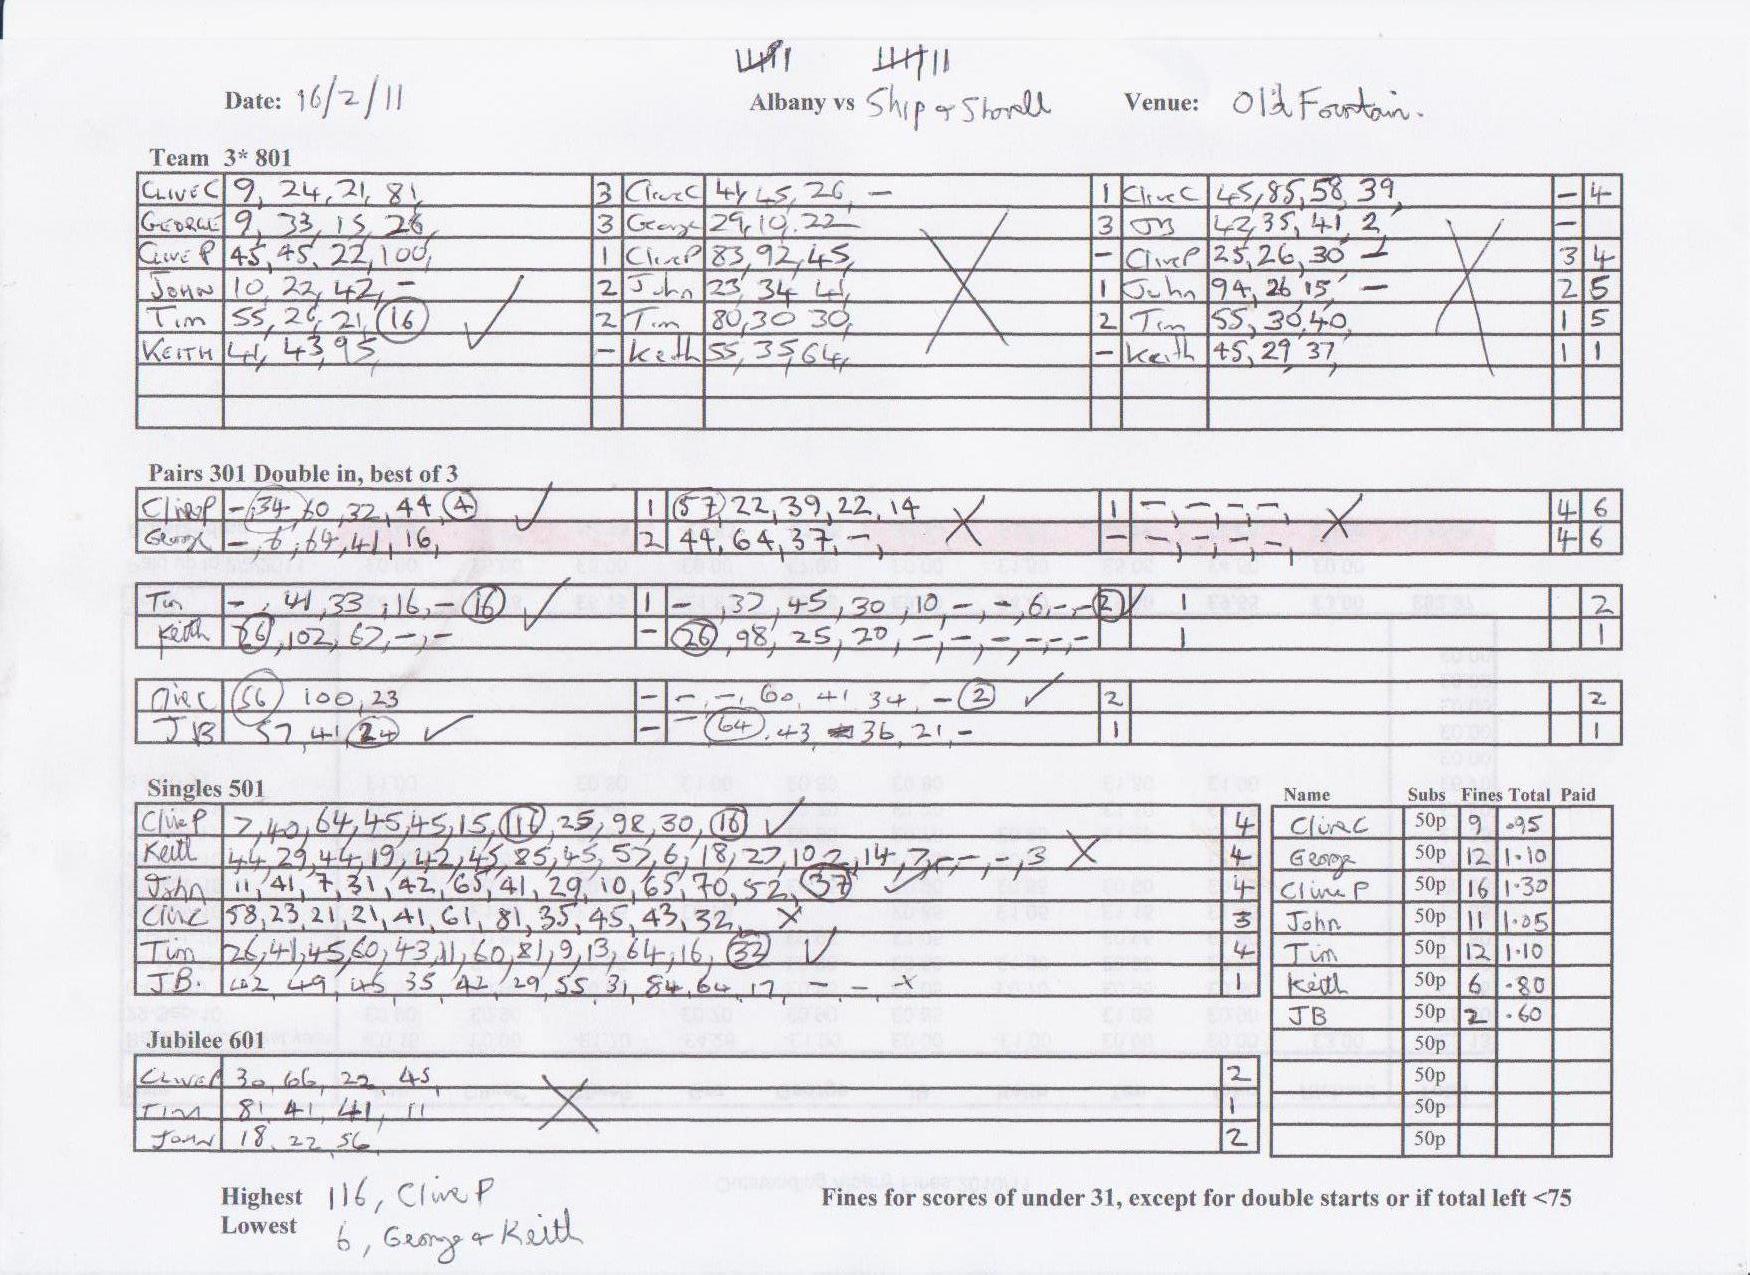 Date: 16/2/11 Albany vs Ship & Shovell Venue: Old Fountain.
Team 3* 801
CLIVE C 9, 24, 21, 81, 3 Clive C 41, 45, 26, - 1 Clive C 45, 85, 58, 39, - 4
GEORGE 9, 33, 15, 26, 3 George 29, 10, 22 3 JB 42, 35, 41, 2, -
Clive P 45, 45, 22, 100, 1 Clive P 83, 92, 45, - Clive P 25, 26, 30 - 3 4
JOHN 10, 22, 42, - 2 John 23, 34 41, 1 John 94, 26 15, - 2 5
Tim 55, 26, 21, 16 2 Tim 80, 30 30, 2 Tim 55, 30, 40, 1 5
KEITH 41, 43, 95, - Keith 55, 35, 64, - Keith 45, 29, 37, 1 1
Pairs 301 Double in, best of 3
Clive P -, 34, 60, 32, 44, 4 1 57, 22, 39, 22, 14 1 -, -, -, -, 4 6
George -, 6, 64, 41, 16, 2 44, 64, 37, -, - -, -, -, -, 4 6
Tim -, 41, 33, 16, - 16 1 -, 37, 45, 30, 10, -, -, 6, -, -, 2 1 2
Keith 26, 102, 67, -, - - 26, 98, 25, 20, -, -, -, -, -, - 1 1
Clive C 56 100, 23 - -, -, 60, 41 34, - 2 2 2
JB 57, 41, 24 - - 64, 43, 36, 21, - 1 1
Singles 501
Clive P 7, 40, 64, 45, 45, 15, 116, 25, 98, 30, 16 4
Keith 44, 29, 44, 19, 42, 45, 85, 45, 57, 6, 18, 27, 10, 2, 14, 7, -, -, -, 3 4
John 11, 41, 7, 31, 42, 65, 41, 29, 10, 65, 70, 52, 37 4
Clive 58, 23, 21, 21, 41, 61, 81, 35, 45, 43, 32, 3
Tim 26, 41, 45, 60, 43, 11, 60, 81, 9, 13, 64, 16, 32 4
JB. 42, 49, 45, 35, 42, 29, 55, 31, 84, 64, 17, -, -, 1
Name Subs Fines Total Paid
Clive C 50p 9 .95
George 50p 12 1.10
Clive P 50p 16 1.30
John 50p 11 1.05
Tim 50p 12 1.10
Keith 50p 6 .80
JB 50p 2 .60
50p
50p
50p
50p
Jubilee 601
CLIVE P 30, 66, 22, 45, 2
TIM 81, 41, 41, 11 1
JOHN 18, 22, 56, 2
Highest 116, Clive P
Lowest 6, George & Keith
Fines for scores of under 31, except for double starts or if total left <75